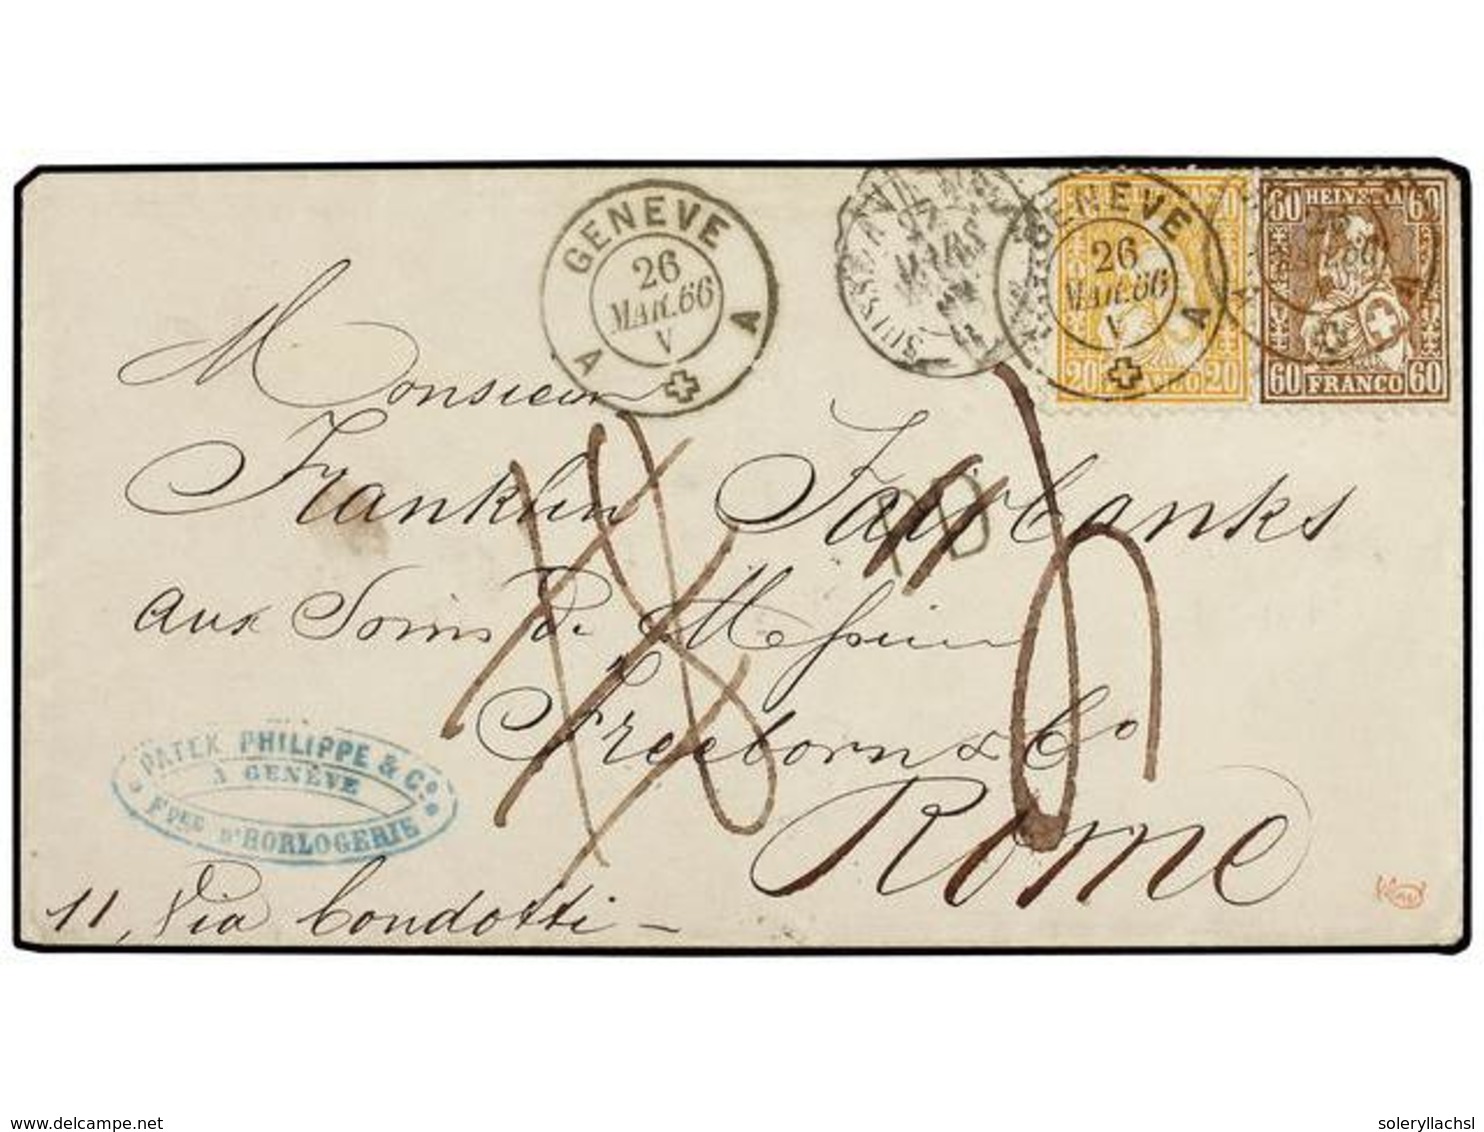 GENEVE
26
MAR.66
V
A A
SUISSE
27
MARS
GENEVE
26
MAR.66
V
A
20 20
20 20
60 HELVETIA 60
60 FRANCO 60
Monsieur
Franklin Fairbanks
aux Soins de Messieurs
Freeborn & Co
Rome
11, Via Condotti
PATEK PHILIPPE & Co.
À GENÈVE
Fque D'HORLOGERIE
delcampe.net
soleryllachsl